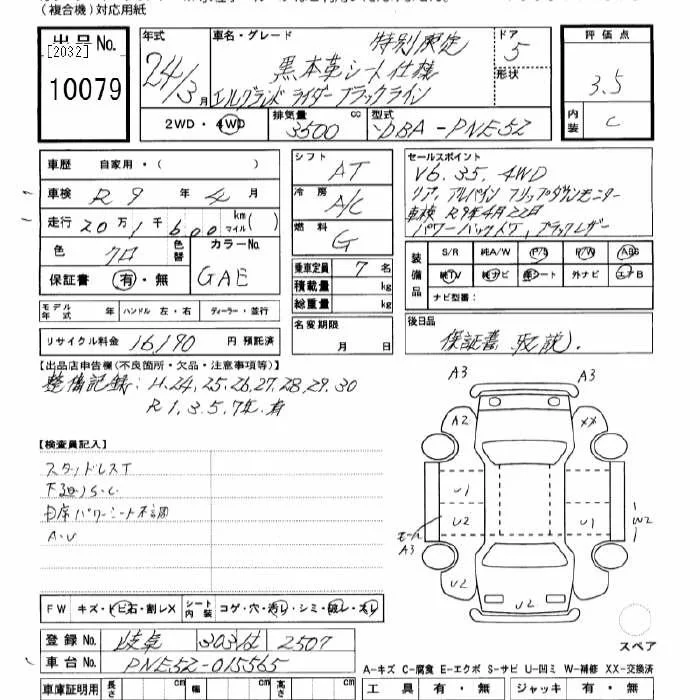 （複合機）対応用紙
出品No.
[2032]
10079
年式
24/3月
車名・グレード
特別限定
黒本革シート仕様
エルグランド ライダー ブラックライン
ドア
5
形状
評価点
3.5
内装
C
2WD・4WD
排気量
3500 cc
型式
DBA-PNE52
車歴 自家用・（ ）
車検 R9年4月
走行 20万1千600 km マイル（ ）
色 クロ 色替
カラーNo.
GAE
保証書 有・無
シフト
AT
冷房
A/C
燃料
G
乗車定員 7名
積載量 kg
総重量 kg
セールスポイント
V6. 35. 4WD
リア、アルパイン フリップダウンモニター
車検 R9年4月22日
ブラックレザー
装備品
S/R 純A/W P/S P/W ABS
純TV 純ナビ 革シート 外ナビ エアB
ナビ型番：
モデル年式 年 ハンドル 左・右 ディーラー・並行
リサイクル料金 16,190 円預託済
名変期限
月 日
後日品
保証書 取説).
【出品店申告欄(不良箇所・欠品・注意事項等)】
整備記録：H.24,25,26,27,28,29,30
R1,3,5,7年.有
【検査員記入】
スタッドレスT
下廻りS.C
A.U
A3
A3
A2
XX
U1
U2
U1
W2
モール
A3
U2
U2
FW キズ・トビ石・割レX
シート内装 コゲ・穴・汚レ・シミ・破レ・スレ
スペア
登録No. 岐阜 303 は 2507
車台No. PNE52-015565
A-キズ C-腐食 E-エクボ S-サビ U-凹ミ W-補修 XX-交換済
車庫証明用 長さ cm 幅 cm 高さ cm
工具 有・無 ジャッキ 有・無